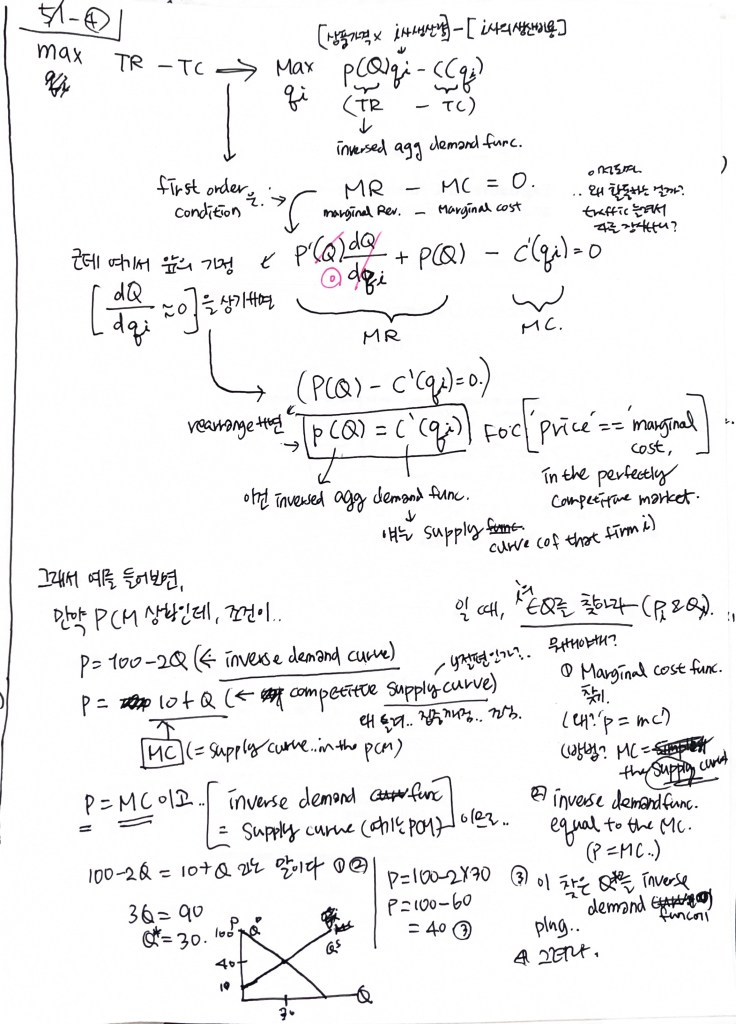 51-④
[상품가격 × i사생산량] - [i사의생산비용]
max qi TR - TC → Max qi P(Q)qi - C(qi)
(TR - TC)
inversed agg demand func.
first order condition MR - MC = 0.
marginal Rev. - Marginal cost
traffic
근데 여기서 앞의 가정 P'(Q) dQ/dqi + P(Q) - C'(qi) = 0
0
[dQ/dqi ≈ 0]을 상기하면
MR
MC.
(P(Q) - C'(qi) = 0.)
rearrange하면 → P(Q) = C'(qi) FOC ['price' == 'marginal cost,]
in the perfectly competitive market.
이건 inversed agg demand func.
얘는 supply curve (of that firm i)
그래서 예를 들어보면,
만약 PCM 상황인데, 조건이.. 일 때, EQ를 찾아라 (P, & Q).
P = 100 - 2Q (← inverse demand curve)
P = 10 + Q (← competitive supply curve)
y절편인가?..
MC (= supply curve.. in the PCM)
뭐해야해?
① Marginal cost func. 찾기.
(왜? 'p = mc')
(방법? MC = the supply curve
P = MC 이고.. [inverse demand func = supply curve (여기는 PCM)] 이므로..
② inverse demand func. equal to the MC.
(P = MC..)
100 - 2Q = 10 + Q 라는 말이다 ① ②
3Q = 90
Q* = 30.
P = 100 - 2×30
P = 100 - 60
= 40 ③
③ 이 찾은 Q*를 inverse demand function plug..
④ 그린다.
P
100
40
10
30
Q
Qᴰ
Qˢ